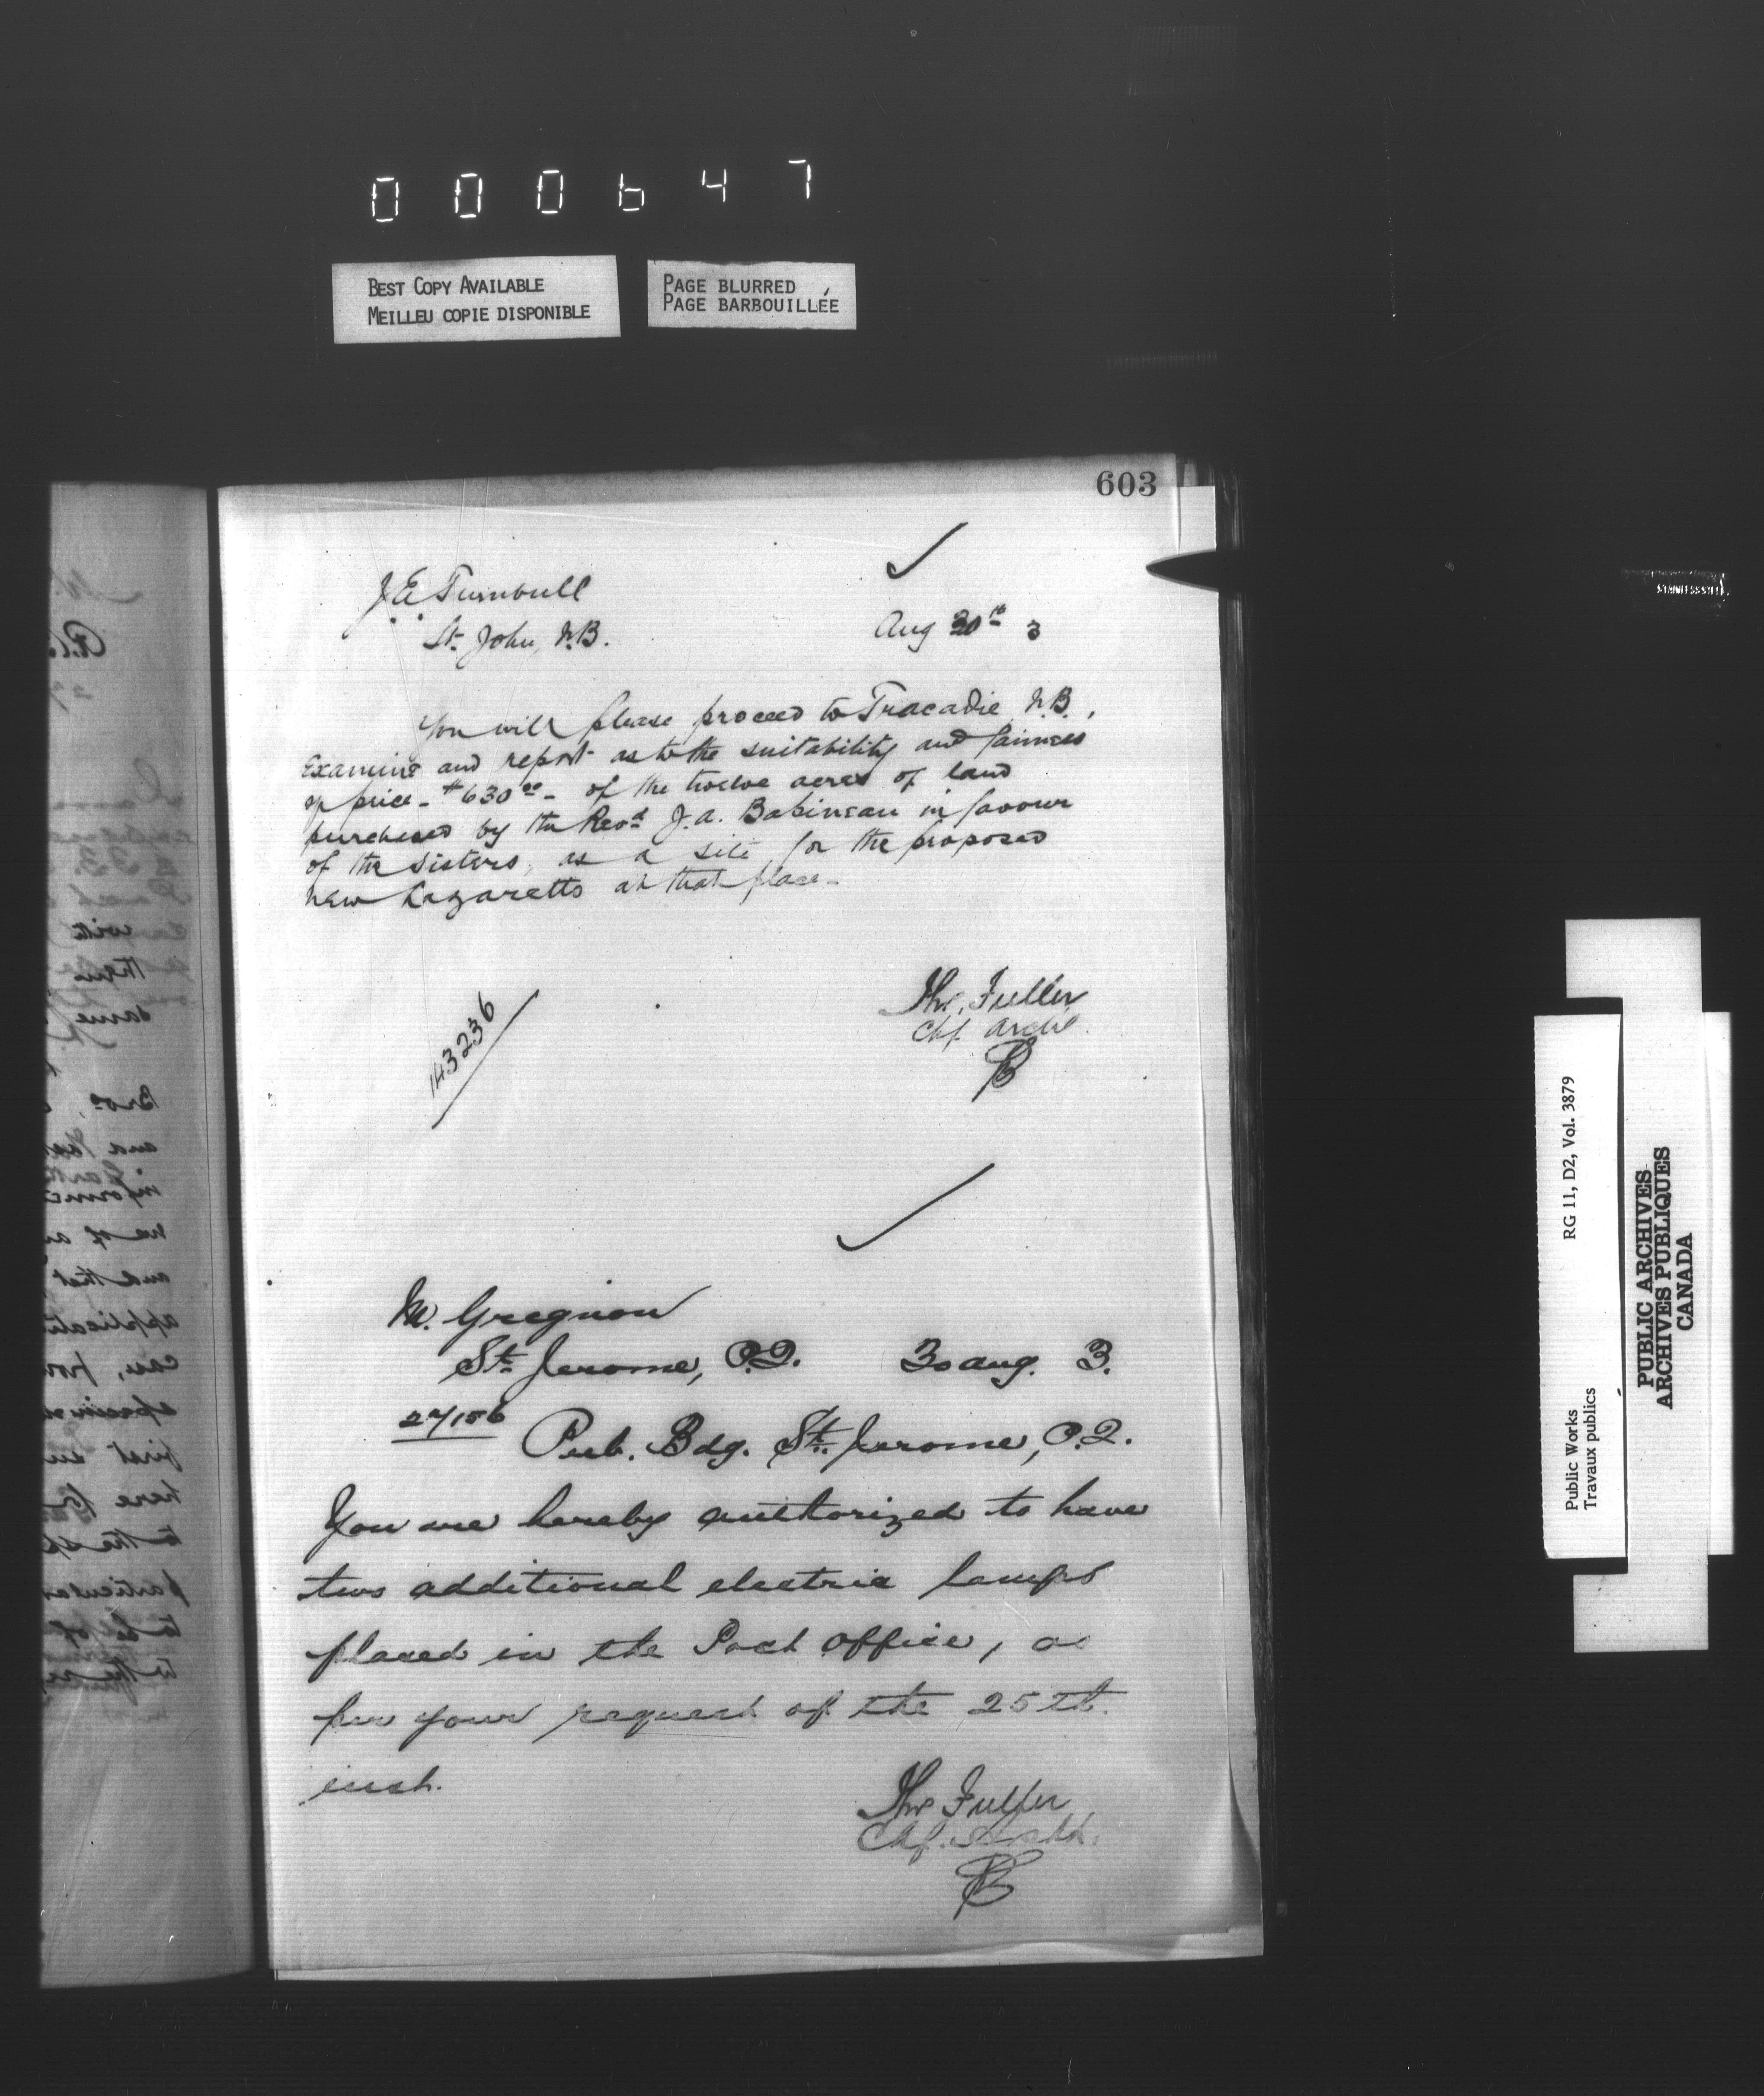 000647
BEST COPY AVAILABLE
MEILLEU COPIE DISPONIBLE
PAGE BLURRED
PAGE BARBOUILLÉE
603
J.E. Turnbull
St. John, N.B.
Aug 30th 3
You will please proceed to Tracadie N.B.,
Examine and report as to the suitability and fairness
of price - $630.00 - of the twelve acres of land
purchased by the Revd J.A. Babineau in favour
of the Sisters, as a site for the proposed
new Lazaretto at that place -
Thos. Fuller
Chf. Archt.
143236
M. Gregnon
St. Jerome, P.Q. 30 aug. 3.
27156
Pub. Bdg. St. Jerome, P.Q.
You are hereby authorized to have
two additional electric lamps
placed in the Post Office, as
per your request of the 25th.
inst.
Thos Fuller
Chf. Archt.
Public Works
Travaux publics
RG 11, D2, Vol. 3879
PUBLIC ARCHIVES
ARCHIVES PUBLIQUES
CANADA